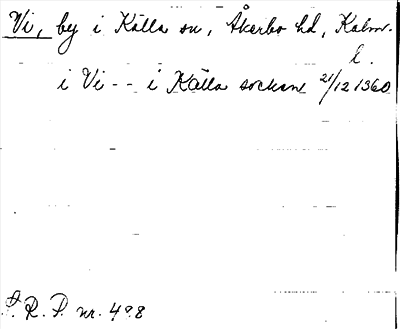 Vi, by i Källa sn, Åkerbo hd, Kalm.
l.
i Vi - - i Källa sockne 21/12 1360
S. R. P. nr. 498